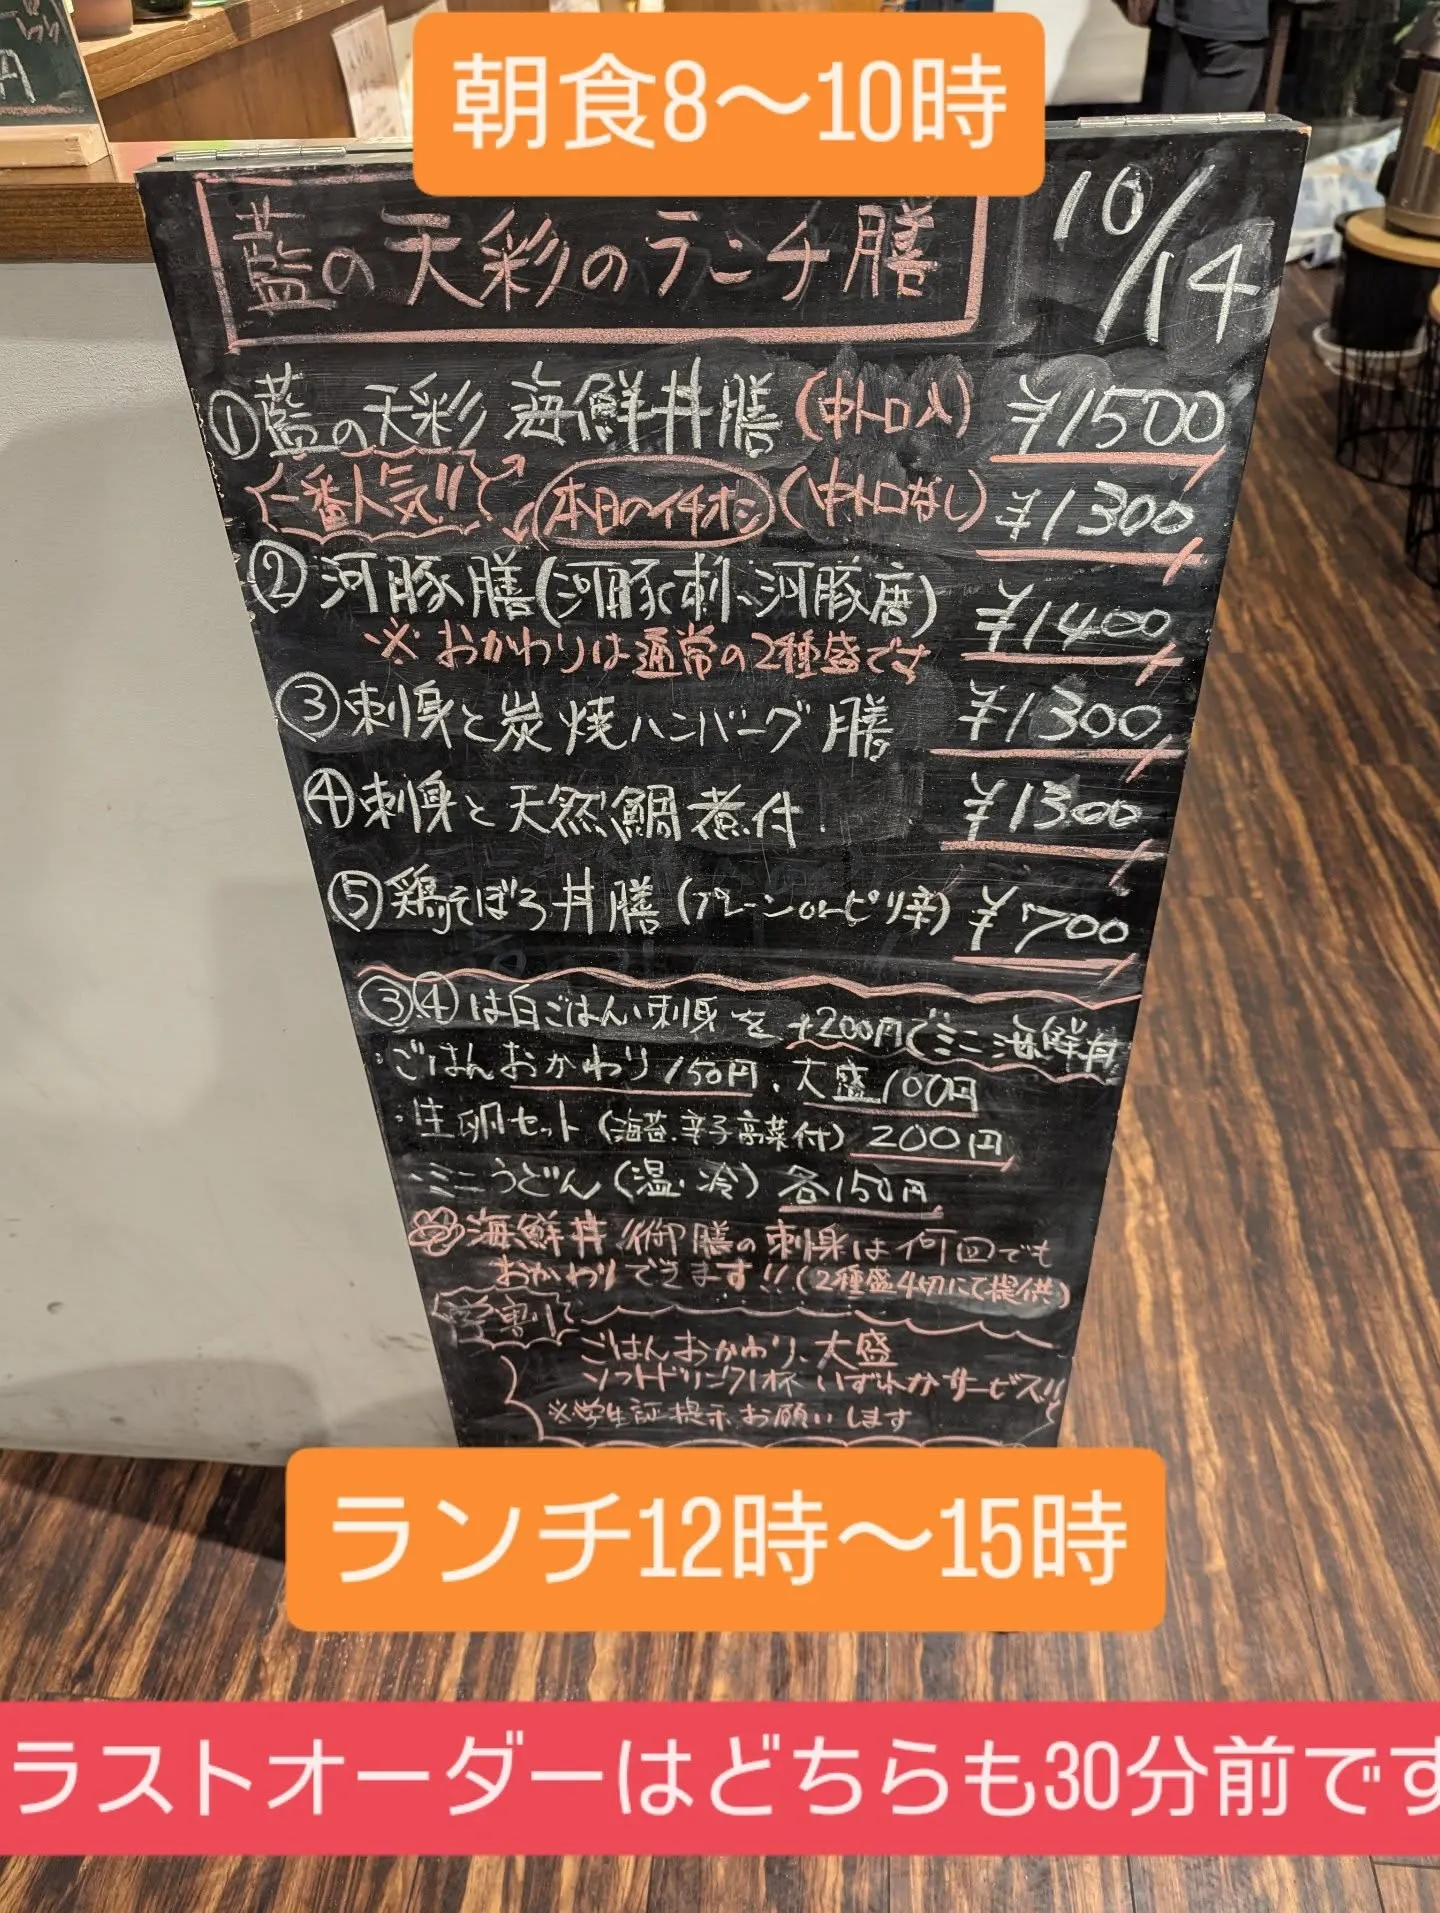 朝食8〜10時
藍の天彩のランチ膳
10/14
①藍の天彩 海鮮丼膳(中トロ入) ¥1500
一番人気!! 本日のイチオシ (中トロなし) ¥1300
②河豚膳(河豚刺、河豚唐) ¥1400
※おかわりは通常の2種盛です
③刺身と炭焼ハンバーグ膳 ¥1300
④刺身と天然鯛煮付 ¥1300
⑤鶏そぼろ丼膳(プレーンorピリ辛) ¥700
③④は白ごはん、刺身を+200円でミニ海鮮丼
・ごはんおかわり150円、大盛100円
・生卵セット(海苔、辛子高菜付) 200円
・ミニうどん(温・冷) 各150円
海鮮丼/御膳の刺身は何回でも
おかわりできます!!(2種盛4切にて提供)
学割
ごはんおかわり、大盛
ソフトドリンク1杯 いずれかサービス!!
※学生証提示お願いします
ランチ12時〜15時
ラストオーダーはどちらも30分前です